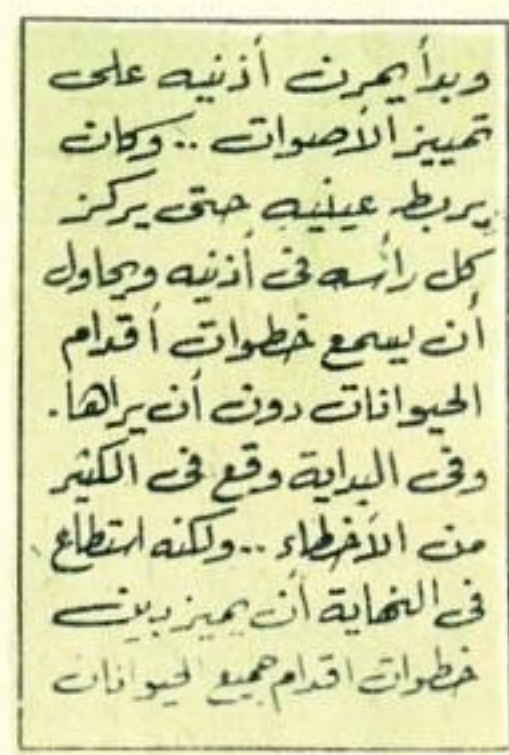 وبدأ يمرن أذنيه على
تمييز الأصوات .. وكان
يربط عينيه حتى يركز
كل رأسه فى أذنيه ويحاول
أن يسمع خطوات أقدام
الحيوانات دون أن يراها.
وفى البداية وقع فى الكثير
من الأخطاء .. ولكنه استطاع
فى النهاية أن يميز بين
خطوات اقدام جميع الحيوانات